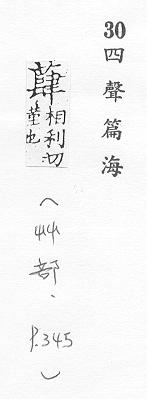 30四聲篇海
蕼
相利切
菫也
(艸部、P.345)